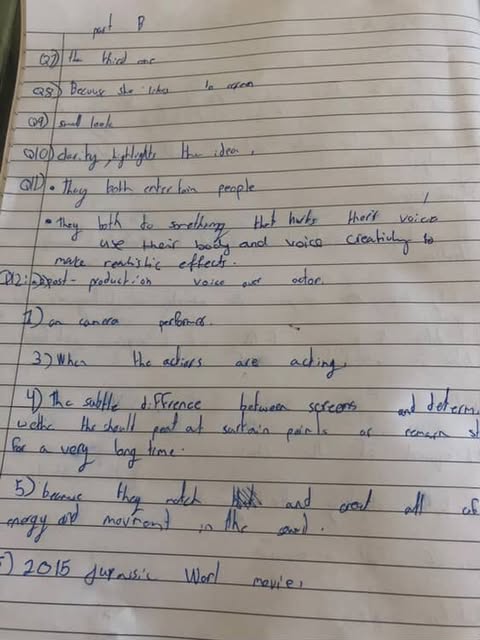 part B
Q7) the third one
Q8) Because she likes to
Q9) small look
Q10) clarity, highlights the idea.
Q11) • They both entertain people
• They both do something that hurts their voice /
use their body and voice creativity to
make realistic effects.
Q12: post-production voice over actor.
1) on camera performer.
3) When the actors are acting.
4) The subtle diffrence between screens and determ
the should at points or remain
for a very long time.
5) because they match and all of
energy and movment in the
2015 Jurassic Worl movie.